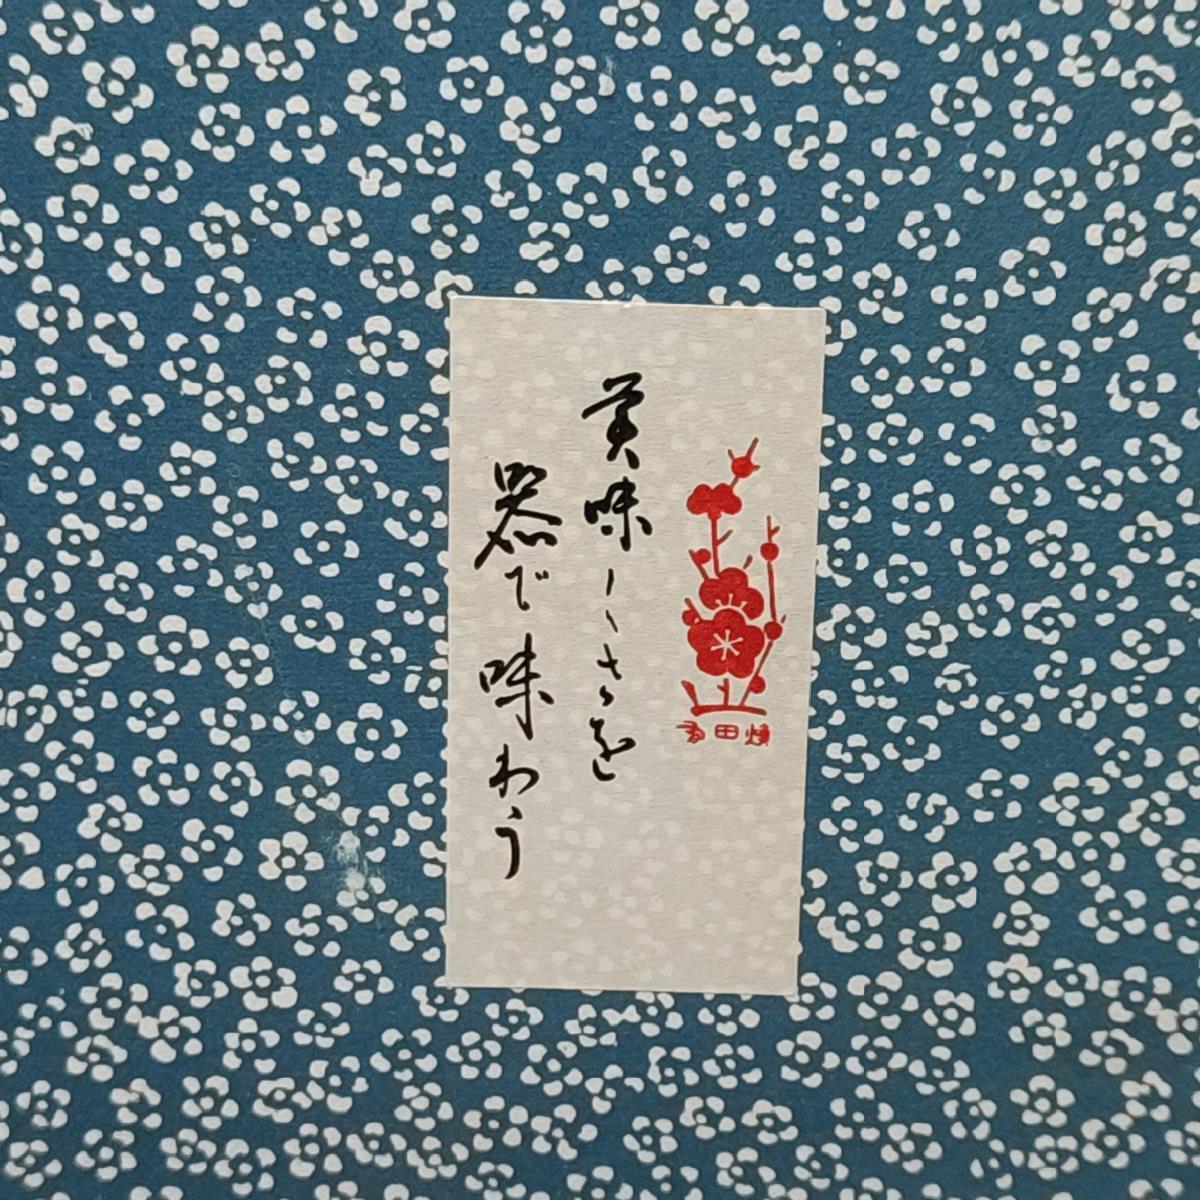 有田焼
美味しさを
器で味わう